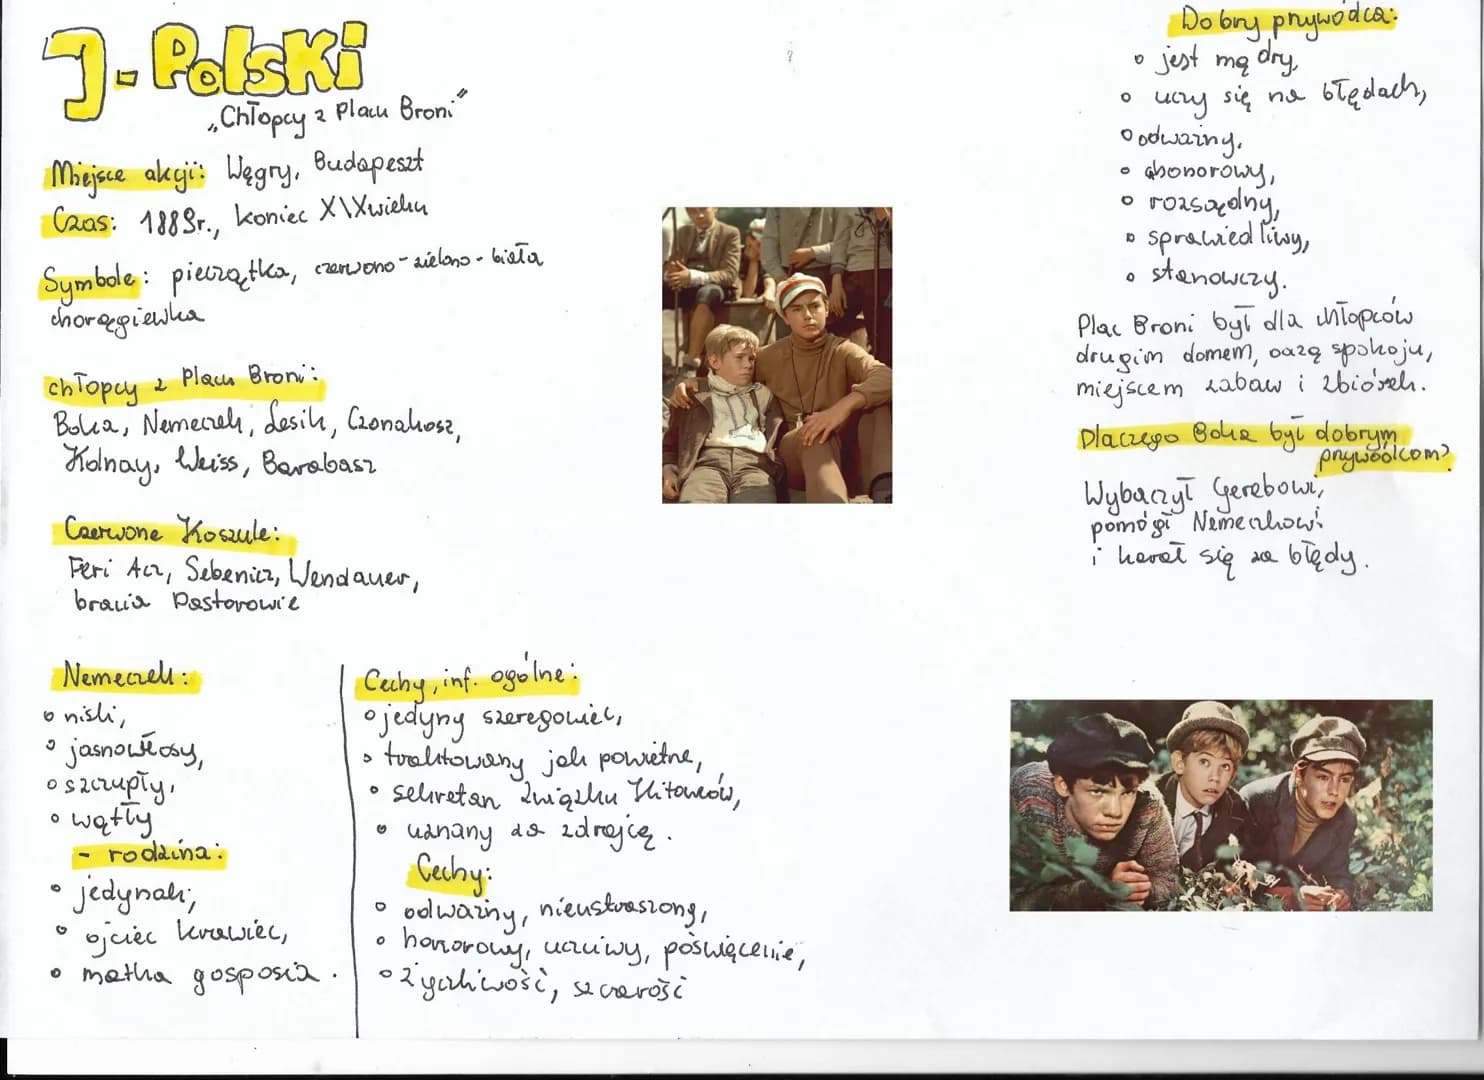 J-Polski
„Chłopcy z Placu Broni"
Miejsce akcji: Węgry, Budapeszt
Czas: 1889r., koniec XIX wieku
Symbole: pieczątka, czerwono-zielono-biała
chorągiewka
chłopcy z Placu Broni:
Boka, Nemeczek, Lesik, Czonakosz,
Kolnay, Weiss, Barabasz
Czerwone Koszule:
Feri Acz, Sebenicz, Wendauer,
bracia Pastorowie
Nemeczek:
niski,
jasnowłosy,
szczupły,
wątły
- rodzina:
jedynak,
ojciec krawiec,
matka gosposia.
Cechy, inf. ogólne:
jedyny szeregowiec,
traktowany jak powietrze,
sekretarz Związku Kitowców,
uznany za zdrajcę.
Cechy:
odważny, nieustraszony,
honorowy, uczciwy, poświęcenie,
życzliwość, szczerość
Dobry przywódca:
jest mądry,
uczy się na błędach,
odważny,
honorowy,
rozsądny,
sprawiedliwy,
stanowczy.
Plac Broni był dla chłopców
drugim domem, oazą spokoju,
miejscem zabaw i zbiórek.
Dlaczego Boka był dobrym
przywódcom?
Wybaczył Gerebowi,
pomógł Nemeczkowi
i karał się za błędy.